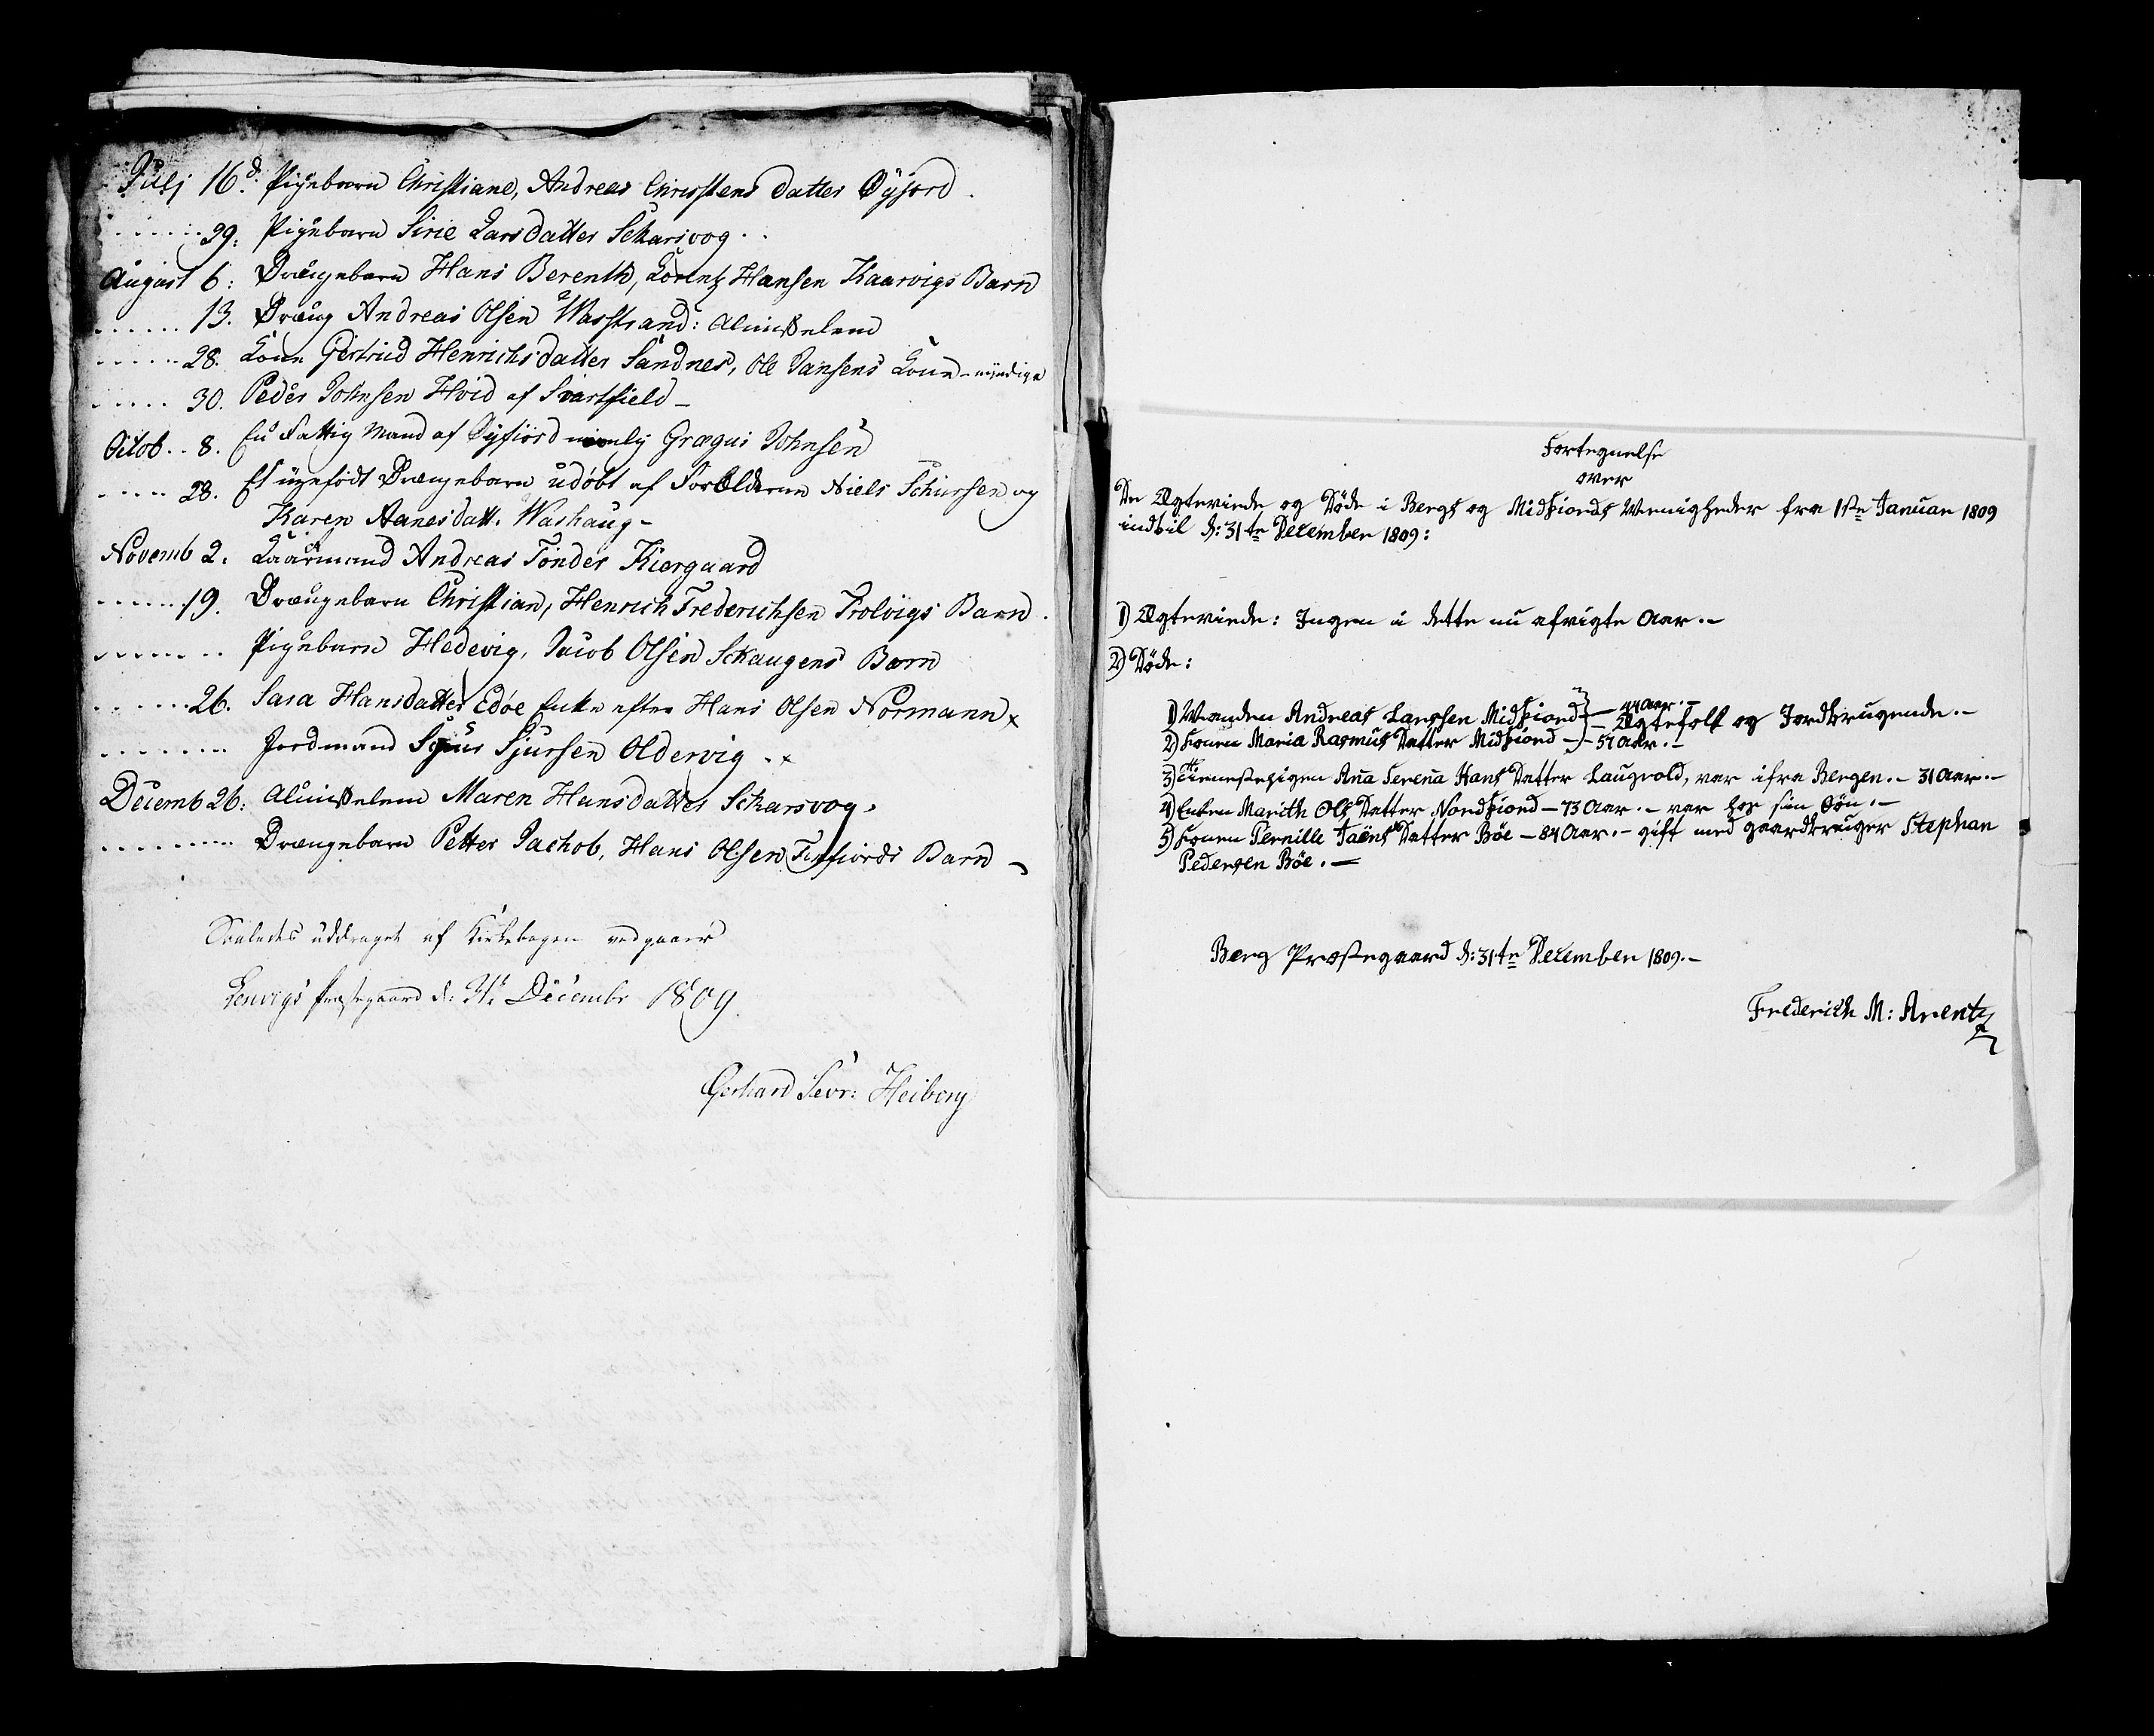 Julj 16d: Pigebarn Christiane, Andreas Christens datter Øyjord.
29: Pigebarn Sirie Larsdatter Scharsvog.
August 6: Drengebarn Hans Berenth, Lorentz Hansen Kaarvigs Barn
13. Dreng Andreas Olsen Wasstrand: Almisselem
28. Kone Giertrud Henrichsdatter Sandnes, Ole Jansens Kone
30. Peder Johnsen Hvid af Svartfield
Octob. 8. En Fattig Mand af Øyfiord nemlig Johnsen
28. Et ugefødt Drængebarn udøbt af Forældrene Niels Schiursen og
Karen Aanesdatt. Washaug
Novemb 2. Kaarmand Andreas Tønder Kiergaard
19. Drængebarn Christian, Henrich Frederichsen Trolvigs Barn.
Pigebarn Hedevig, Jacob Olsen Schaugens Barn
26. Sara Hansdatter Edøe Enke efter Hans Olsen Normann x
Jordmand Sjursen Oldervig. x
Decemb 26: Almisselem Maren Hansdatter Scharsvog.
Drængebarn Petter Jachob, Hans Olsen Finfiords Barn
Saaledes uddraget af Kirkebogen vedgaaer
Lenvigs Præstegaard d: 31. Decembr 1809.
Gerhard Sevr: Heiberg
Fortegnelse
over
De Ægteviede og Døde i Bergs og Midfiords Menigheder fra 1ste Januar 1809
indtil d: 31te December 1809:
1) Ægteviede: Ingen i dette nu afvigte Aar.-
2) Døde:
1) Manden Andreas Larssen Midfiord } - 44 Aar.-
2) Konen Maria Rasmus Datter Midfiord - } - 57 Aar.- Ægtefolk og Jordbrugende.-
3) Tienestepigen Aña Sereña Hans Datter Laugvold, var ifra Bergen.- 31 Aar.-
4) Enken Marith Ols Datter Nordfiord - 73 Aar.- var hos sin Søn.-
5) Konen Pernille Jaëns Datter Böe - 84 Aar.- gift med gaardbruger Stephan
Pedersen Böe.-
Berg Præstegaard d: 31te December 1809.-
Frederich M: Arentz